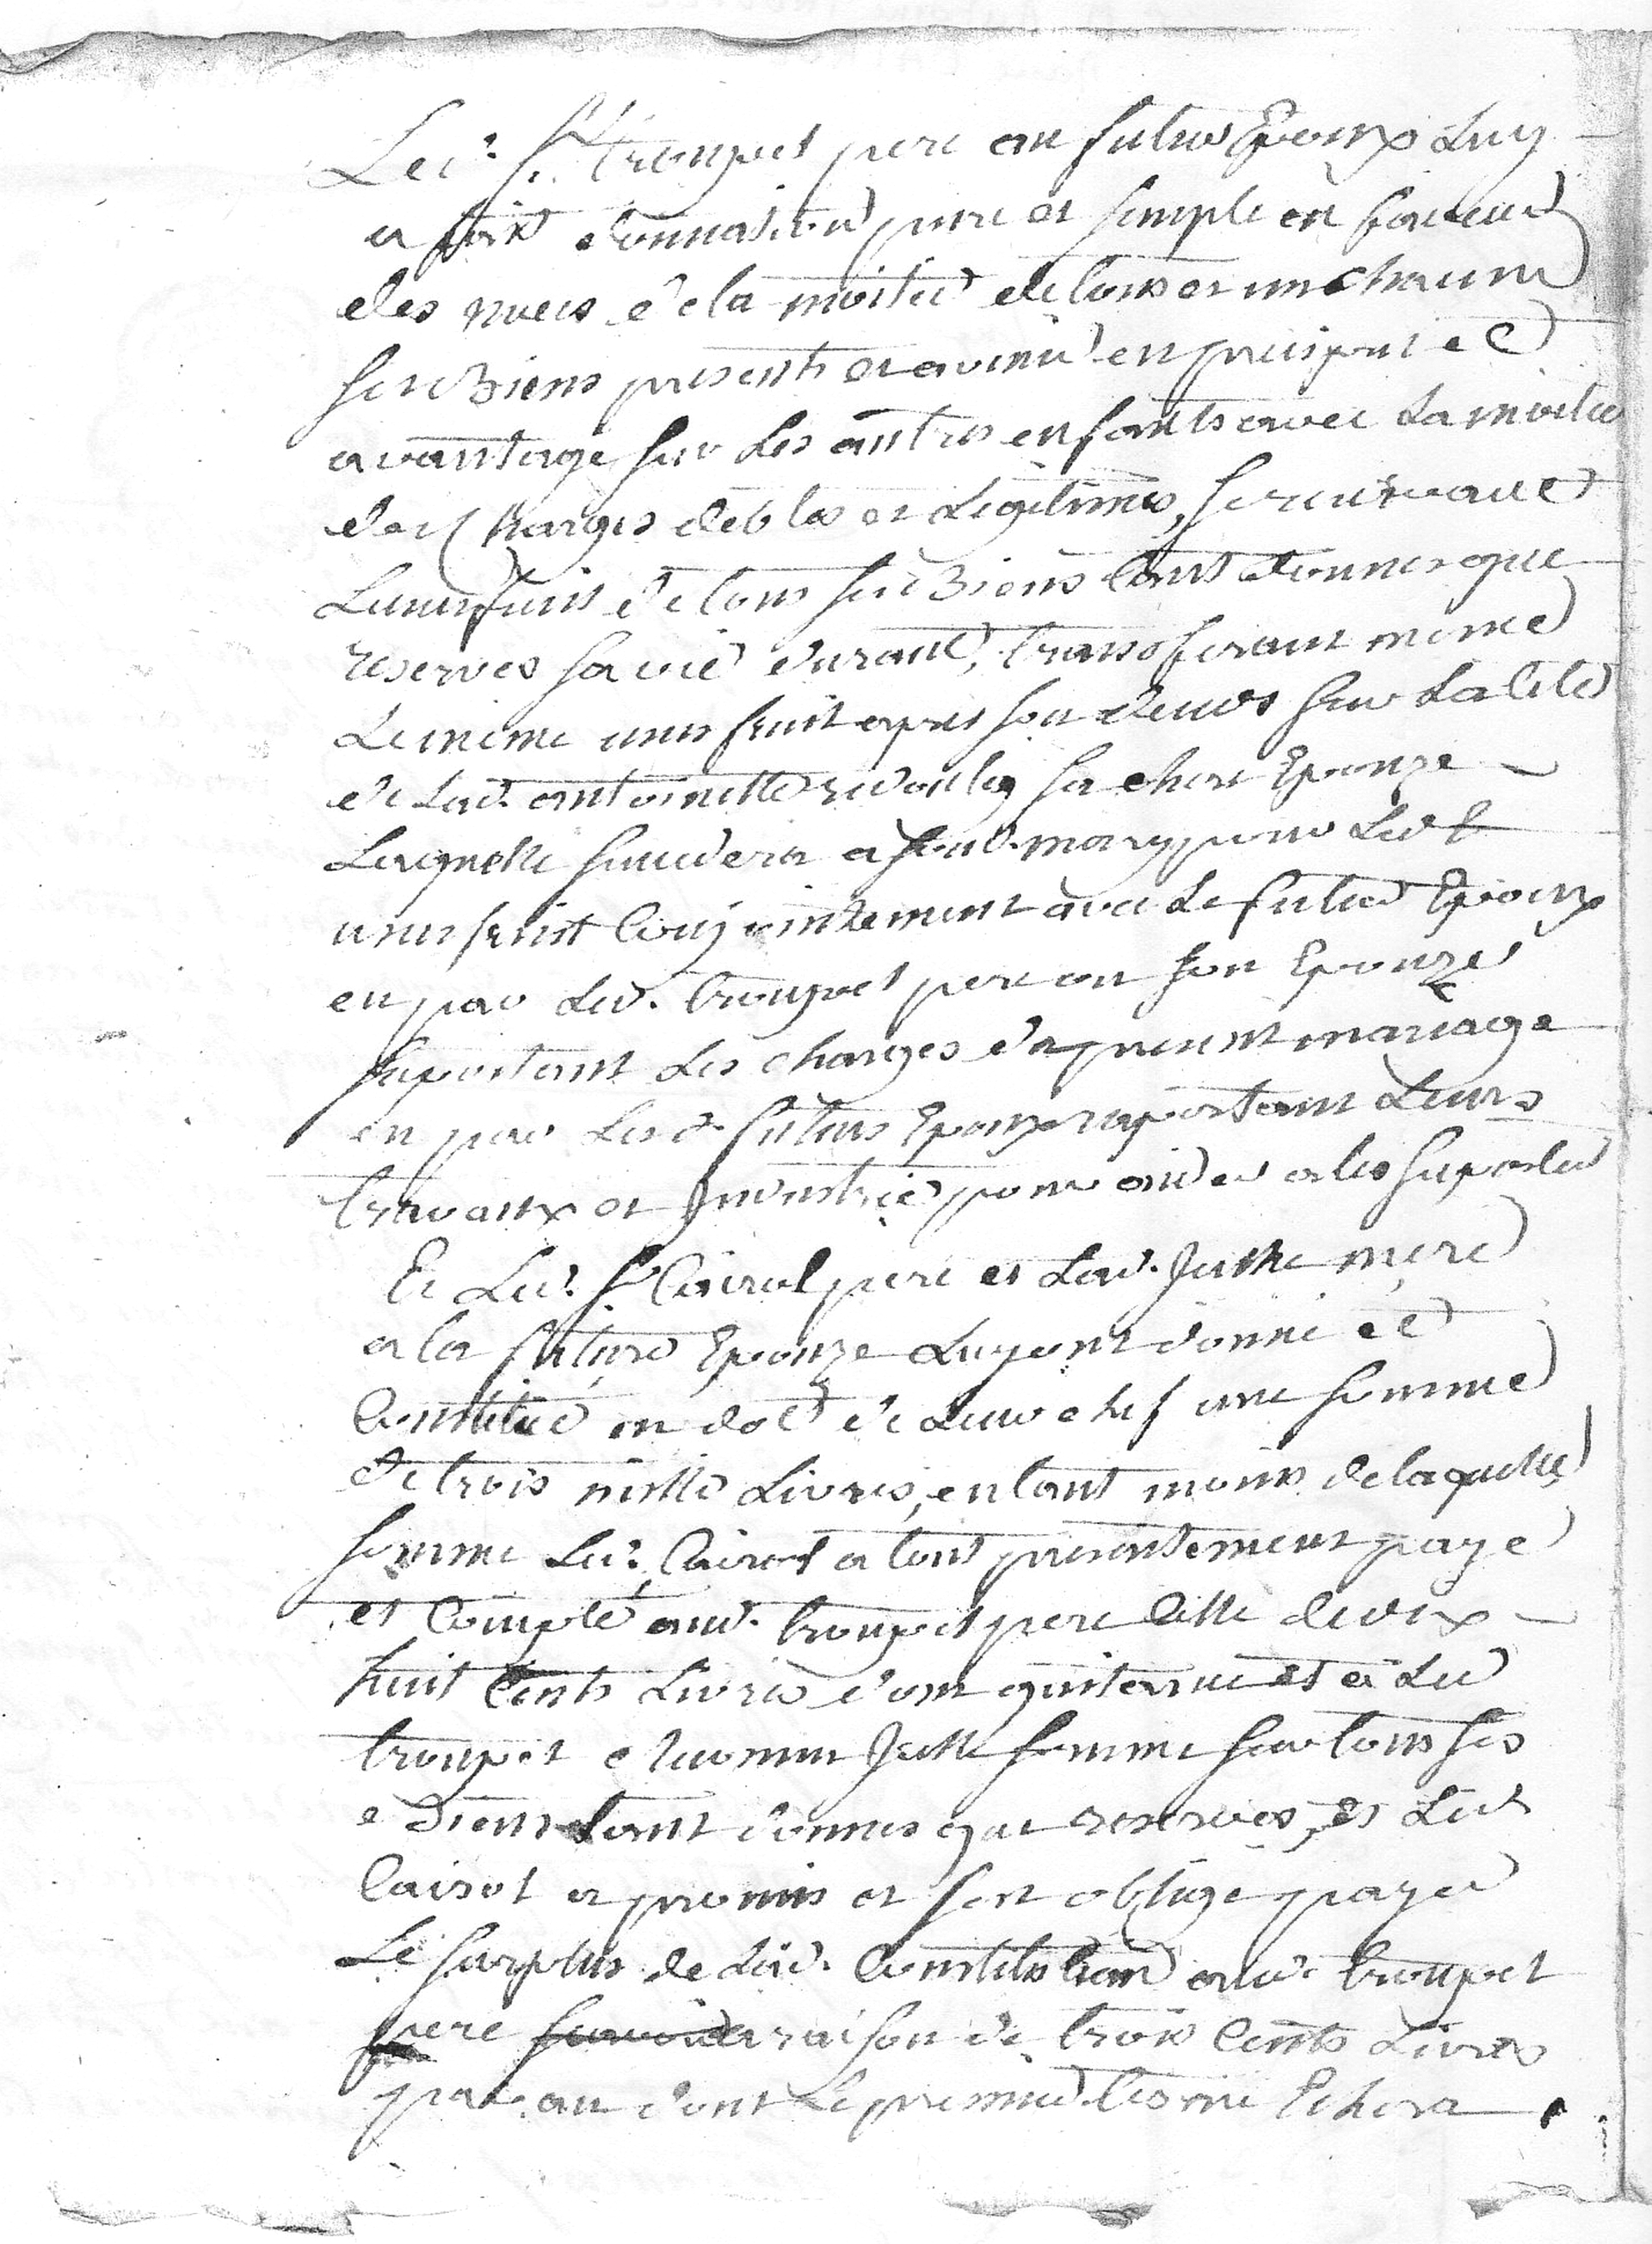 Led. Sr. troupel pere au futur Epoux Luy
a fait donnation pure et simple en faveur
des nuces de la moitié de tous et un chacuns
ses Biens presents et avenir en preciput et
avantage sur Les autres enfants avec La moitié
des Charges debtes et Legitimes, se reservant
Lusufruit de tous ses Biens tant donnes que
reservés sa vie durant, transferant meme
Le meme usufruit apres son deces sur La tete
de Lad. antoinette sa chere Epouze
Laquelle succedera a sond. mary pour Led.
usufruit Conjointement avec Le futur Epoux
en par Led. troupel pere ou son Epouze
suportant Les charges du present mariage
en par Lesd. futurs Epoux raportant Leurs
travaux et Industrie pour aider a les suporter
Et Led. Sr. Cairol pere et Lad. Juste mere
a la future Epouze Luy ont donné et
Constitué en dot de Leur chef une somme
de trois mille Livres, en tant moins de laquelle
somme Led. Cairol a tout presentement payé
et Compté aud. troupel pere Celle de dix
huit Cents Livres dont quitance et a Led.
troupel reconnu Jelle somme sur tous ses
Biens tant donnes que reservés, et Led.
Cairol a promis et sest obligé payer
Le surplus de Lad. Constitution aud. troupel
pere a raison de trois Cents Livres
par an dont Le premier terme Echera